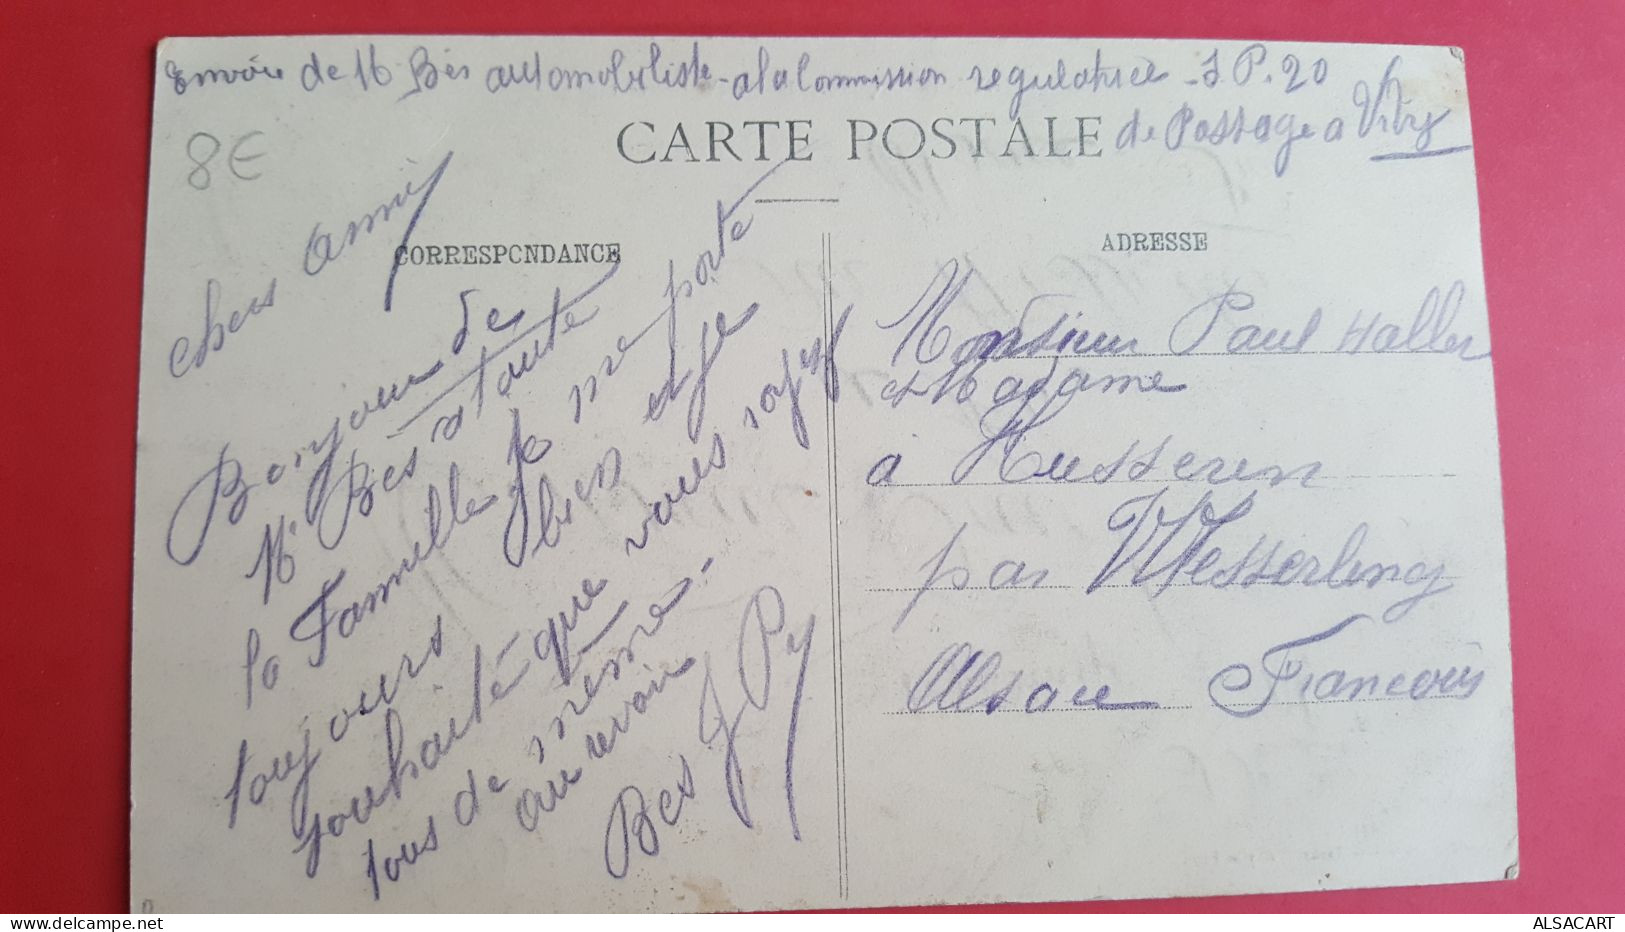 Envoie de M Bès automobiliste - a la Commission regulatrice - S P. 20
de Passage a Vitry
8€
CARTE POSTALE
CORRESPONDANCE
Chers Amis
Bonjour de
Mr Bès et toute
la Famille Je me porte
toujours bien et Je
souhaite que vous soyez
tous de même.
au revoir
Bès J Py
ADRESSE
Monsieur Paul Haller
et Madame
à Husseren
par Wesserling
Alsace Francais
ALSACART